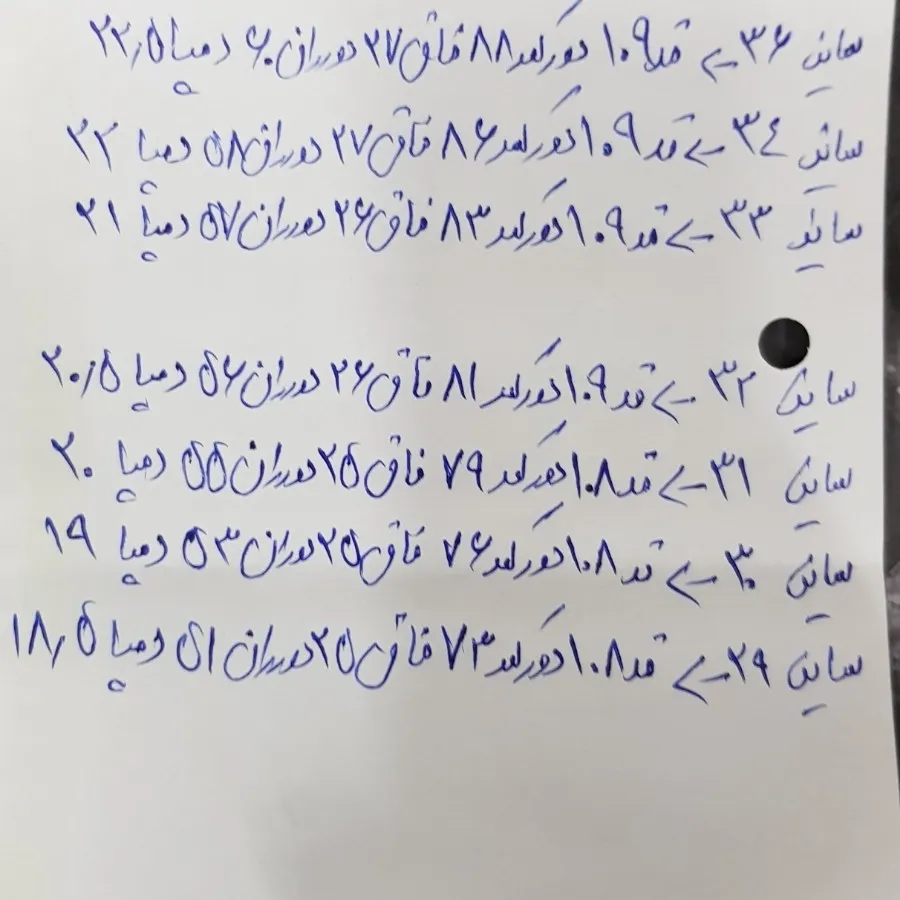 سایز ۳۶ ← قد ۱۰۹ دورکمر ۸۸ فاق ۲۷ دورران ۶۰ دمپا ۲۲٫۵
سایز ۳٤ ← قد ۱۰۹ دورکمر ۸۶ فاق ۲۷ دورران ۵۸ دمپا ۲۲
سایز ۳۳ ← قد ۱۰۹ دورکمر ۸۳ فاق ۲۶ دورران ۵۷ دمپا ۲۱
سایز ۳۲ ← قد ۱۰۹ دورکمر ۸۱ فاق ۲۶ دورران ۵۶ دمپا ۲۰٫۵
سایز ۳۱ ← قد ۱۰۸ دورکمر ۷۹ فاق ۲۵ دورران ۵۵ دمپا ۲۰
سایز ۳۰ ← قد ۱۰۸ دورکمر ۷۶ فاق ۲۵ دوران ۵۳ دمپا ۱۹
سایز ۲۹ ← قد ۱۰۸ دورکمر ۷۳ فاق ۲۵ دورران ۵۱ دمپا ۱۸٫۵